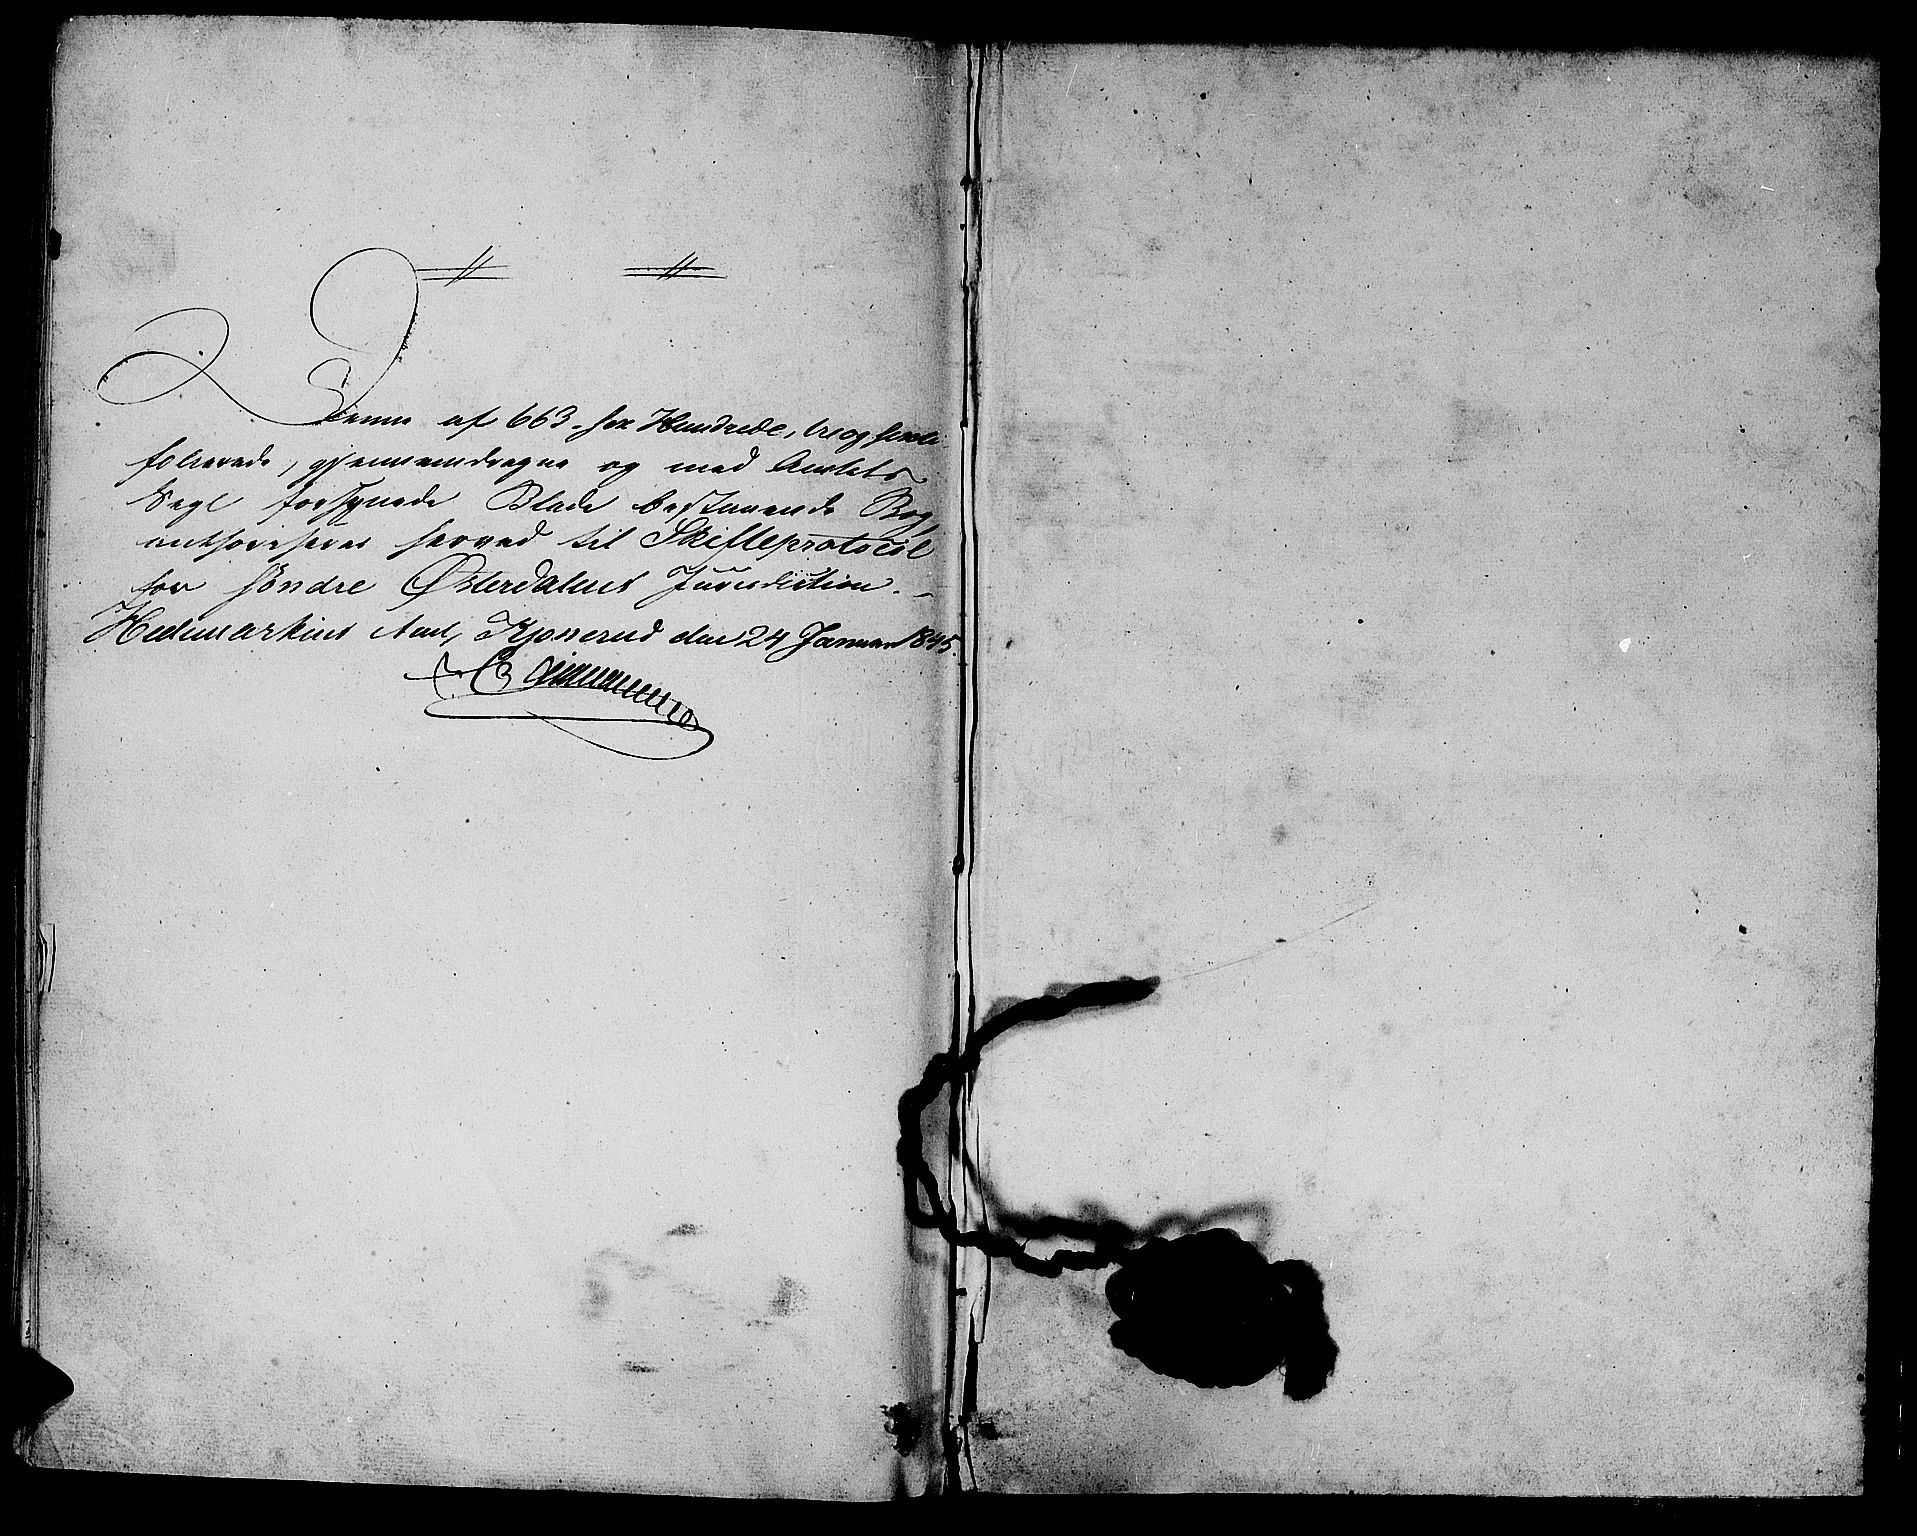 Denne af 663 - sex Hundrede, tre og sexti
folierede, gjennemdragne og med Amtets
Segl forsynede Blade bestaaende Bog,
authoriseres herved til Skifteprotocol
for søndre Østerdalens Jurisdiction. -
Hedemarkens Amt, Kjonerud den 24 Januar 1845.